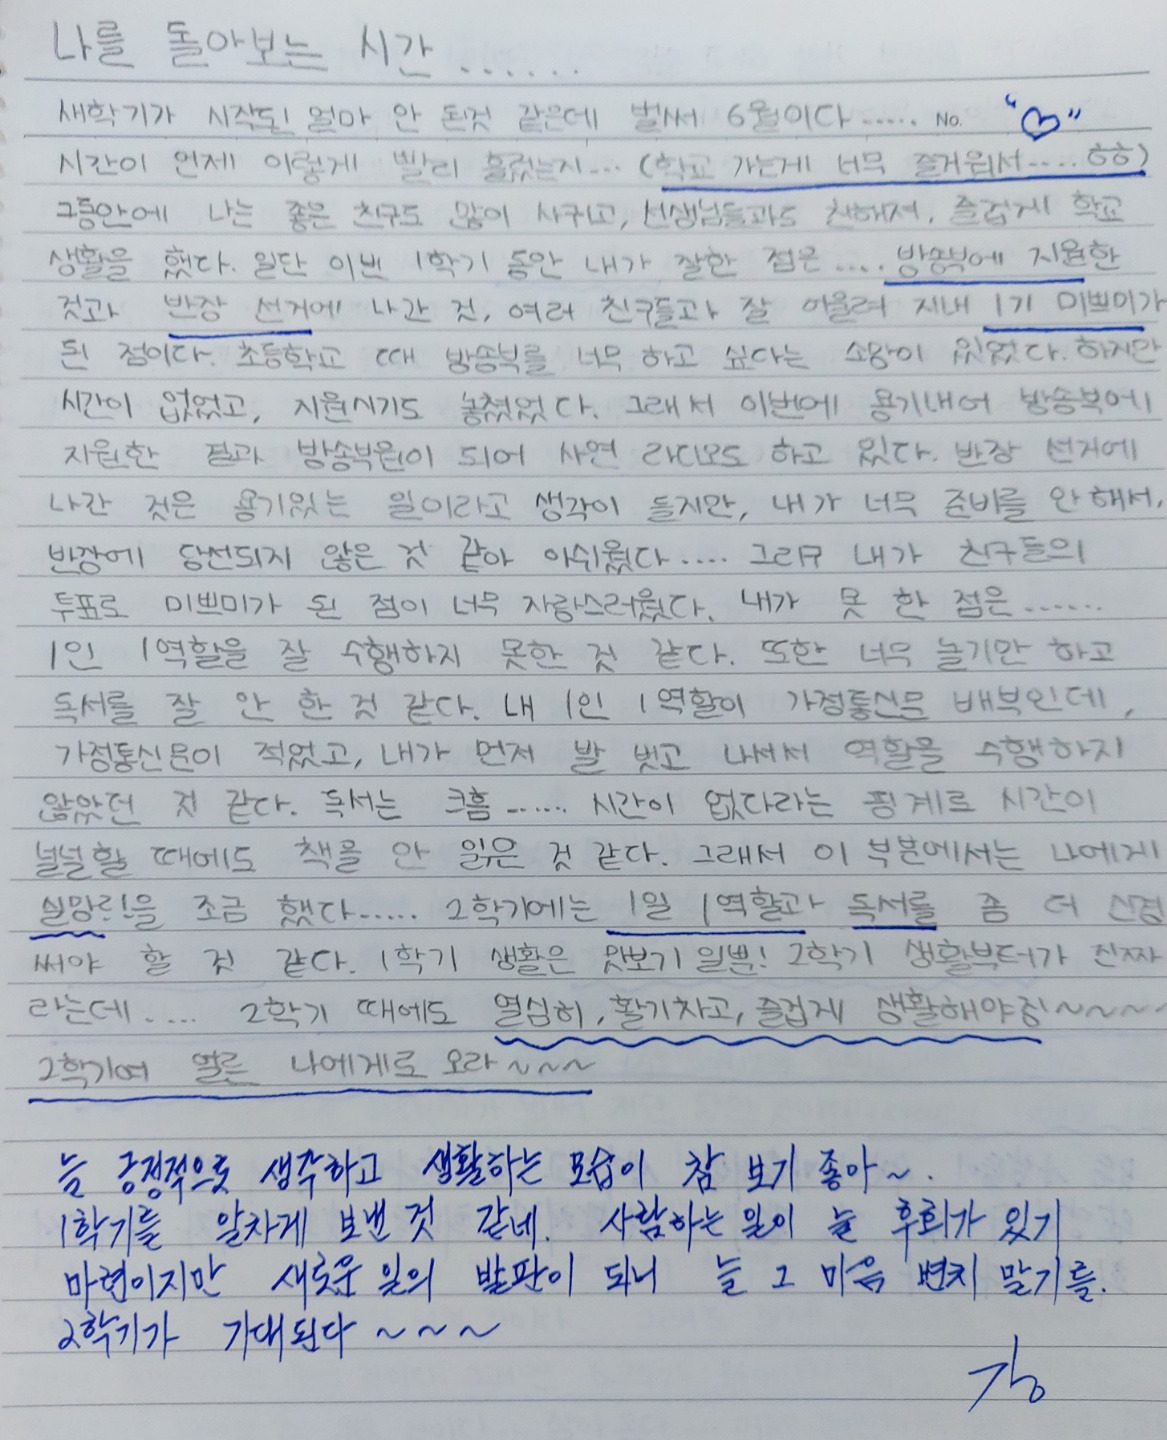 나를 돌아보는 시간......
새학기가 시작된 얼마 안 된것 같은데 벌써 6월이다..... No. "♡"
시간이 언제 이렇게 빨리 흘렀는지... (학교 가는게 너무 즐거워서....ㅎㅎ)
그동안에 나는 좋은 친구도 많이 사귀고, 선생님들과도 친해져, 즐겁게 학교
생활을 했다. 일단 이번 1학기 동안 내가 잘한 점은.... 방송부에 지원한
것과 반장 선거에 나간 것, 여러 친구들과 잘 어울려 지내 1기 미쁘미가
된 점이다. 초등학교 때 방송부를 너무 하고 싶다는 소망이 있었다. 하지만
시간이 없었고, 지원시기도 놓쳤었다. 그래서 이번에 용기내어 방송부에
지원한 결과 방송부원이 되어 사연 라디오도 하고 있다. 반장 선거에
나간 것은 용기있는 일이라고 생각이 들지만, 내가 너무 준비를 안 해서,
반장에 당선되지 않은 것 같아 아쉬웠다.... 그리구 내가 친구들의
투표로 미쁘미가 된 점이 너무 자랑스러웠다. 내가 못 한 점은......
1인 1역할을 잘 수행하지 못한 것 같다. 또한 너무 놀기만 하고
독서를 잘 안 한 것 같다. 내 1인 1역할이 가정통신문 배부인데,
가정통신문이 적었고, 내가 먼저 발 벗고 나서서 역할을 수행하지
않았던 것 같다. 독서는 크흠...... 시간이 없다라는 핑계로 시간이
널널할 때에도 책을 안 읽은 것 같다. 그래서 이 부분에서는 나에게
실망!!을 조금 했다..... 2학기에는 1일 1역할과 독서를 좀 더 신경
써야 할 것 같다. 1학기 생활은 맛보기일뿐! 2학기 생활부터가 진짜
라는데..... 2학기 때에도 열심히, 활기차고, 즐겁게 생활해야징~~~~
2학기여 얼른 나에게로 오라~~~
늘 긍정적으로 생각하고 생활하는 모습이 참 보기 좋아~.
1학기를 알차게 보낸 것 같네. 사람하는 일이 늘 후회가 있기
마련이지만 새로운 일의 발판이 되니 늘 그 마음 변치 말기를.
2학기가 기대된다~~~